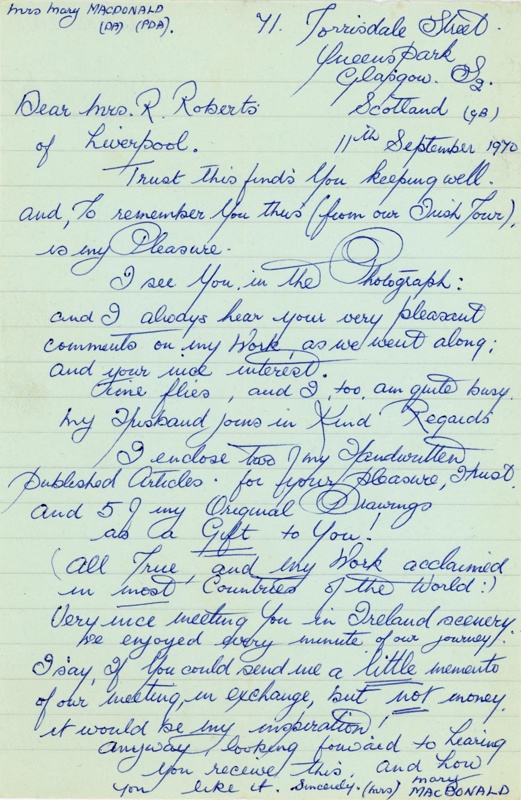 Mrs Mary MACDONALD
(DA) (PDA).
71. Torrisdale Street.
Queens Park
Glasgow. S2.
Dear Mrs. R. Roberts Scotland (GB)
of Liverpool. 11th September 1970
Trust this finds you keeping well.
and, To remember you thus (from our Irish Tour),
is my Pleasure.
I see You, in the Photograph:
and I always hear your very pleasant
comments on my Work, as we went along;
and your nice interest.
Time flies, and I, too, am quite busy.
My Husband joins in Kind Regards
I enclose two of my Handwritten
published Articles. for your pleasure, I trust.
and 5 of my Original Drawings
as a Gift to You!
(All True, and my Work acclaimed
in most Countries of the World:)
Very nice meeting You in Ireland scenery
We enjoyed every minute of our journey!
I say, if You could send me a little memento
of our meeting, in exchange, but not money,
it would be my inspiration,
anyway, looking forward to hearing
you receive this, and how
you like it. Sincerely. (Mrs) Mary
MACDONALD